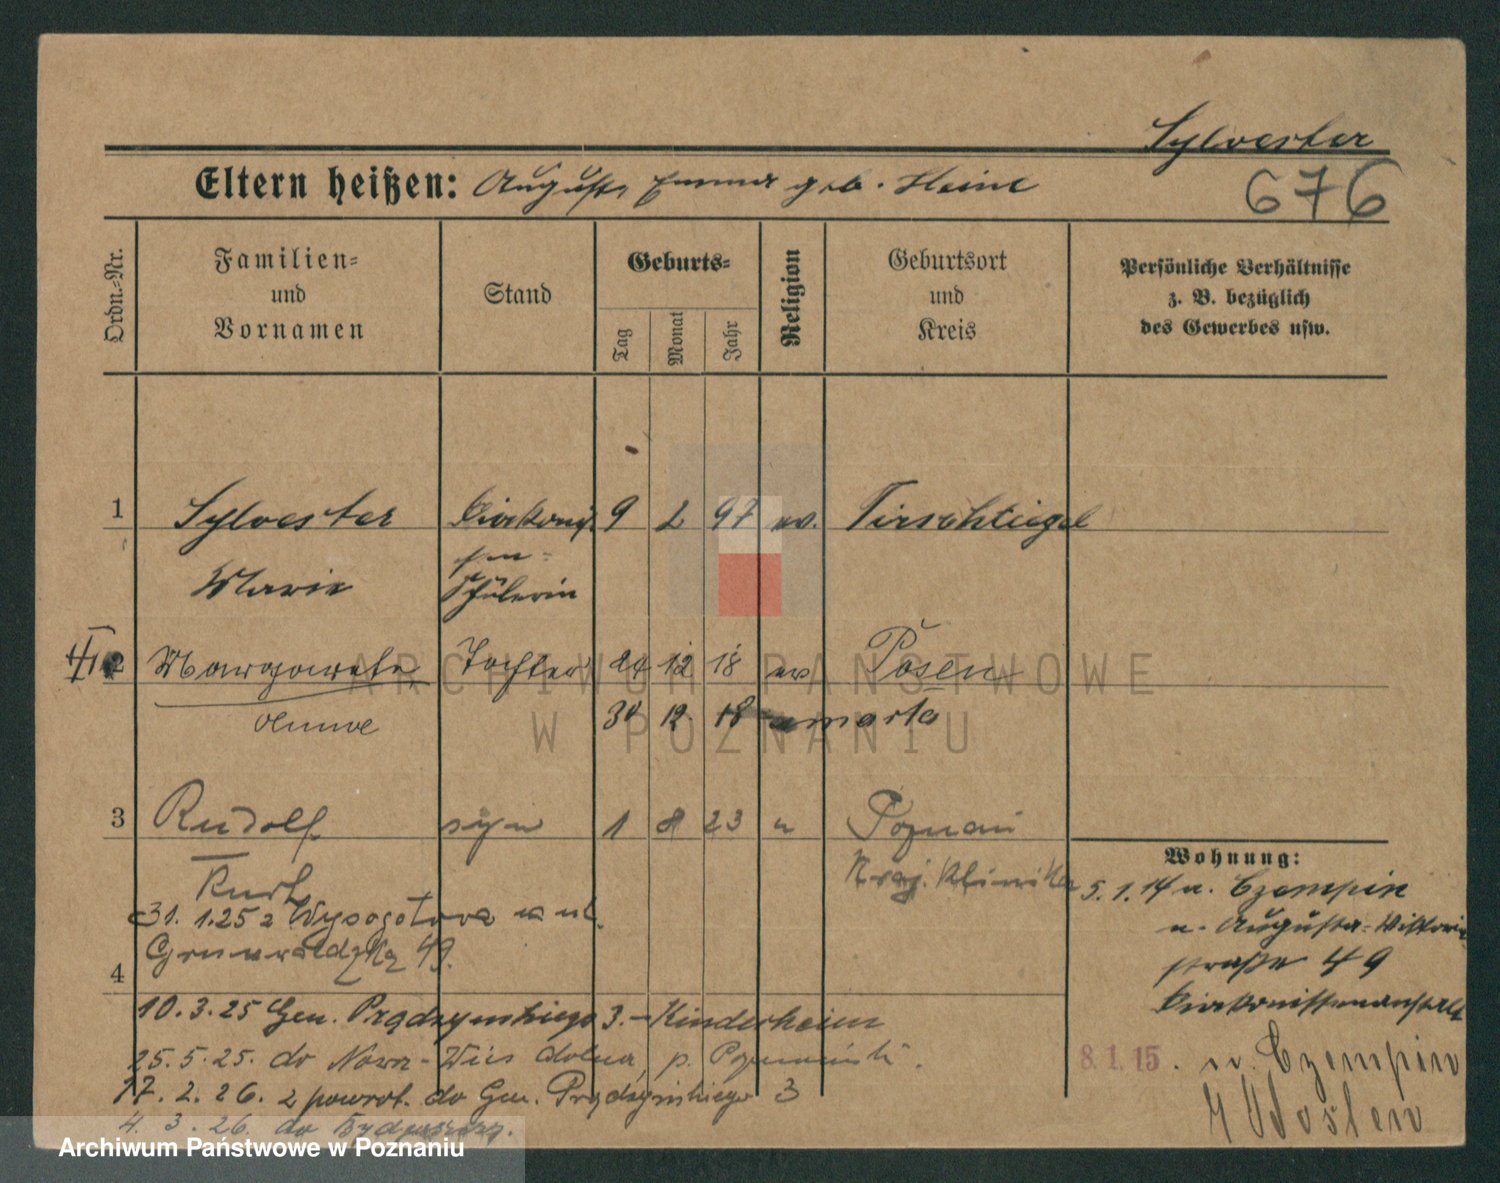 Sylvester
Eltern heißen: August, Emma geb. Heine
676
Ordn.-Nr.
Familien-
und
Vornamen
Stand
Geburts-
Tag
Monat
Jahr
Religion
Geburtsort
und
Kreis
Persönliche Verhältnisse
z. B. bezüglich
des Gewerbes usw.
1 Sylvester Diakonis- 9 2 97 ev. Tirschtiegel
sen-
Marie Schülerin
2 Margarete Tochter 24 12 18 ev Posen
34 12 18 umarła
3 Rudolf syn 1 8 23 " Poznań
Kurt Kraj. Klinika
31. 1.25 z Wysogotowa na ul.
Grunwaldzką 49.
4
10.3.25 Gen. Prądzyńskiego 3. - Kinderheim
25.5.25. do Nowa-Wieś dolna, p. Poznański.
17. 2. 26. z powrot. do Gen. Prądzyńskiego 3
4. 3. 26. do
Wohnung:
5.1.14 n. Czempin
n. Augusta-Viktoria
straße 49
Diakonissenanstalt
8.1.15. n. Czempin
Kr Kosten
ARCHIWUM PAŃSTWOWE
W POZNANIU
Archiwum Państwowe w Poznaniu